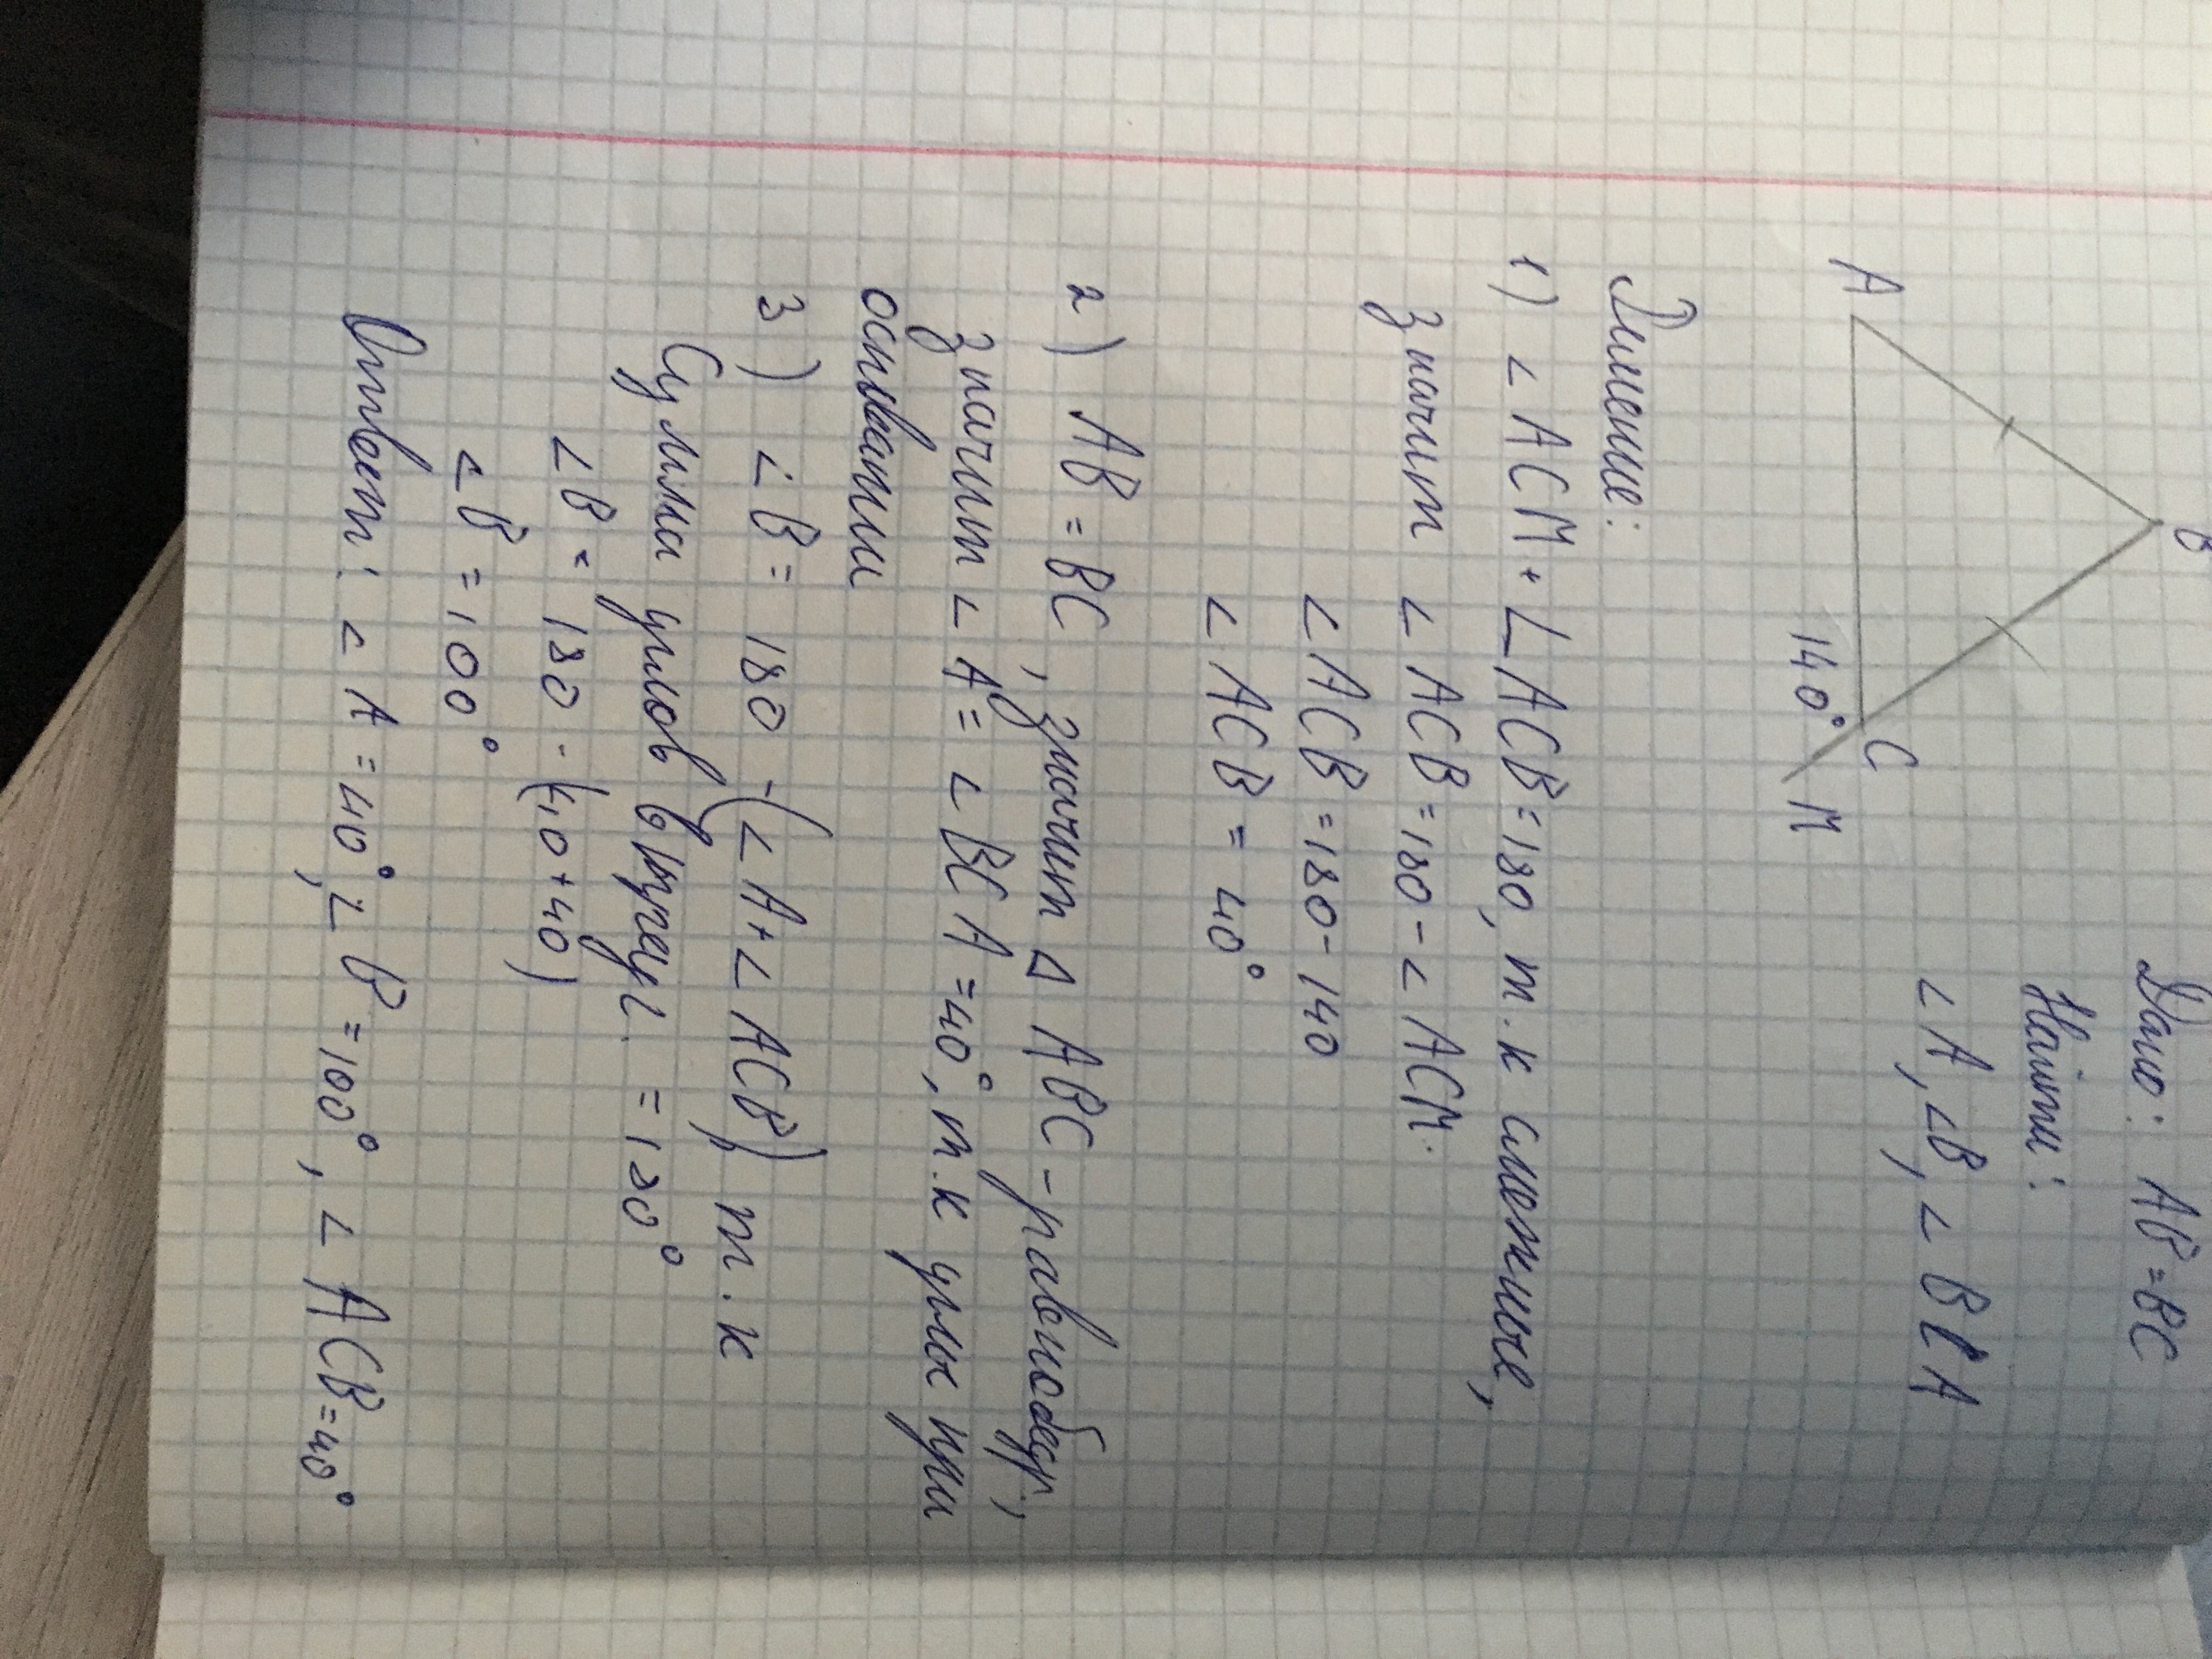 B
A
C
140°
M
Дано: AB=BC
Найти:
∠A, ∠B, ∠BCA
Решение:
1) ∠ACM+∠ACB=180, т.к смежные,
значит ∠ACB=180-∠ACM.
∠ACB=180-140
∠ACB=40°
2) AB=BC, значит Δ ABC-равнобедр.,
значит ∠A=∠BCA=40°, т.к углы при
основании
3) ∠B=180-(∠A+∠ACB) т.к
Сумма углов в треуг. =180°
∠B=180-(40+40)
∠B=100°
Ответ: ∠A=40°, ∠B=100°, ∠ACB=40°